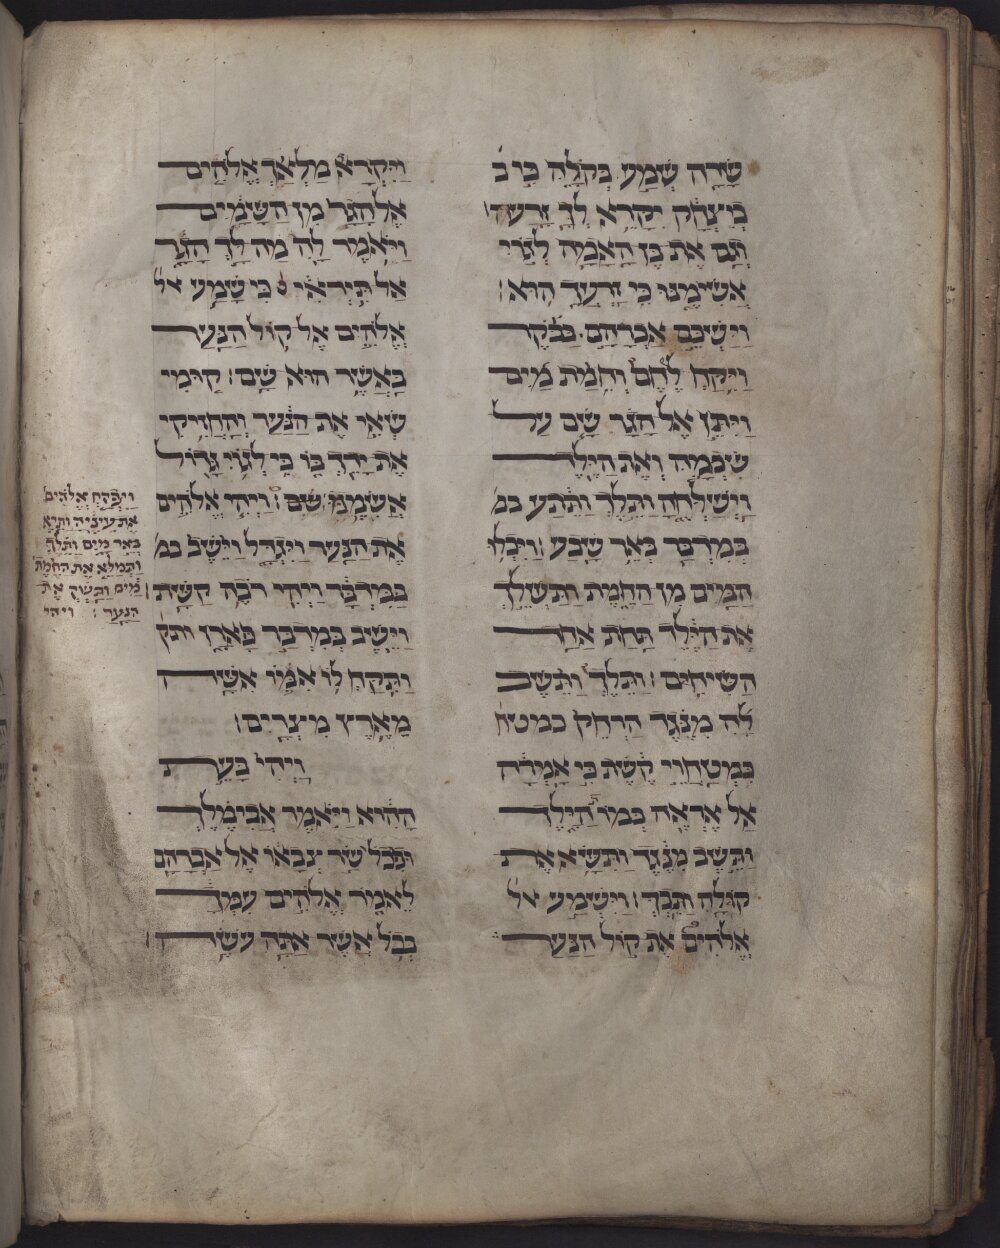 שרה שמע בקלה כי ב
ביצחק יקרא לך זרע
גם את בן האמה לגוי
אשימנו כי זרעך הוא׃
וישכם אברהם בבקר
ויקח לחם וחמת מים
ויתן אל הגר שם על
שכמה ואת הילד
וישלחה ותלך ותתע במ
במדבר באר שבע׃ ויכלו
המים מן החמת ותשלך
את הילד תחת אחד
השיחים׃ ותלך ותשב
לה מנגד הרחק כמטח
כמטחוי קשת כי אמרה
אל אראה במות הילד
ותשב מנגד ותשא את
קולה ותבך׃ וישמע אל
אלהים את קול הנער
ויקרא מלאך אלהים
אל הגר מן השמים
ויאמר לה מה לך הגר
אל תיראי כי שמע אל
אלהים אל קול הנער
באשר הוא שם׃ קומי
שאי את הנער והחזיקי
את ידך בו כי לגוי גדול
אשמנו שם׃ ויהי אלהים
את הנער ויגדל וישב במ
במדבר ויהי רבה קשת׃
וישב במדבר פארן ותק
ותקח לו אמו אשה
מארץ מצרים׃
ויהי בעת
ההיא ויאמר אבימלך
ופכל שר צבאו אל אברהם
לאמר אלהים עמך
בכל אשר אתה עשה׃
ויפקח אלהים
את עיניה ותרא
באר מים ותלך
ותמלא את החמת
מים ותשק את
הנער׃ ויהי